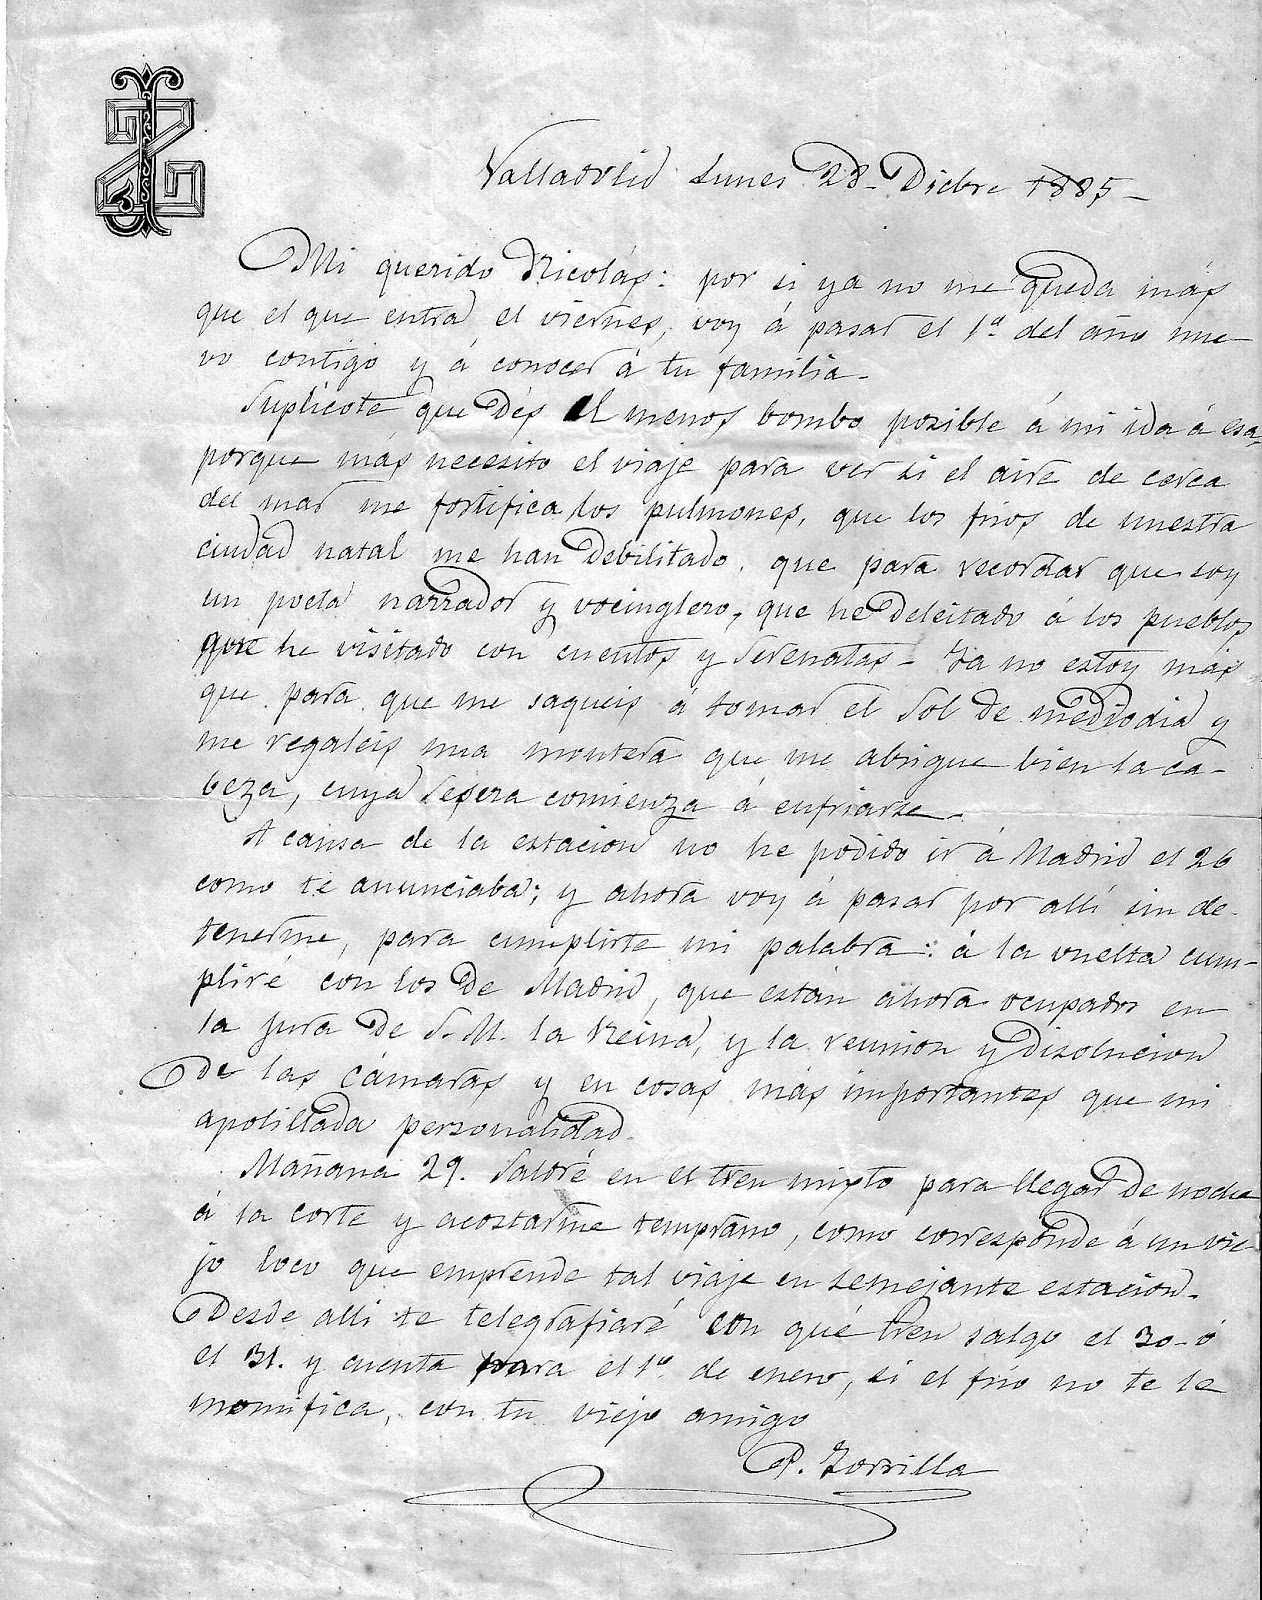 Valladolid Lunes 28 Dicbre 1885
Mi querido Nicolás: por si ya no me queda más
que el que entra el viernes, voy á pasar el 1º del año nue-
vo contigo y á conocer á tu familia.
Suplícote que dés el menos bombo posible á mi ida á esa,
porque más necesito el viaje para ver si el aire de cerca
del mar me fortifica los pulmones, que los frios de nuestra
ciudad natal me han debilitado, que para recordar que soy
un poeta narrador y vocinglero, que he deleitado á los pueblos
que he visitado con cuentos y serenatas. Ya no estoy más
que para que me saqueis á tomar el Sol de mediodia y
me regaleis una montera que me abrigue bien la ca-
beza, cuya sesera comienza á enfriarse.
A causa de la estacion no he podido ir á Madrid el 26
como te anunciaba; y ahora voy á pasar por allí sin de-
tenerme, para cumplirte mi palabra: á la vuelta cum-
pliré con los de Madrid, que están ahora ocupados en
la jura de S.M. la Reina, y la reunion y disolucion
de las cámaras y en cosas más importantes que mi
apolillada personalidad.
Mañana 29. Saldré en el tren mixto para llegar de noche
á la corte y acostarme temprano, como corresponde á un vie
jo loco que emprende tal viaje en semejante estacion.
Desde alli te telegrafiaré con qué tren salgo el 30 ó
el 31. y cuenta para el 1º de enero, si el frio no te le
momifica, con tu viejo amigo
P. Zorrilla